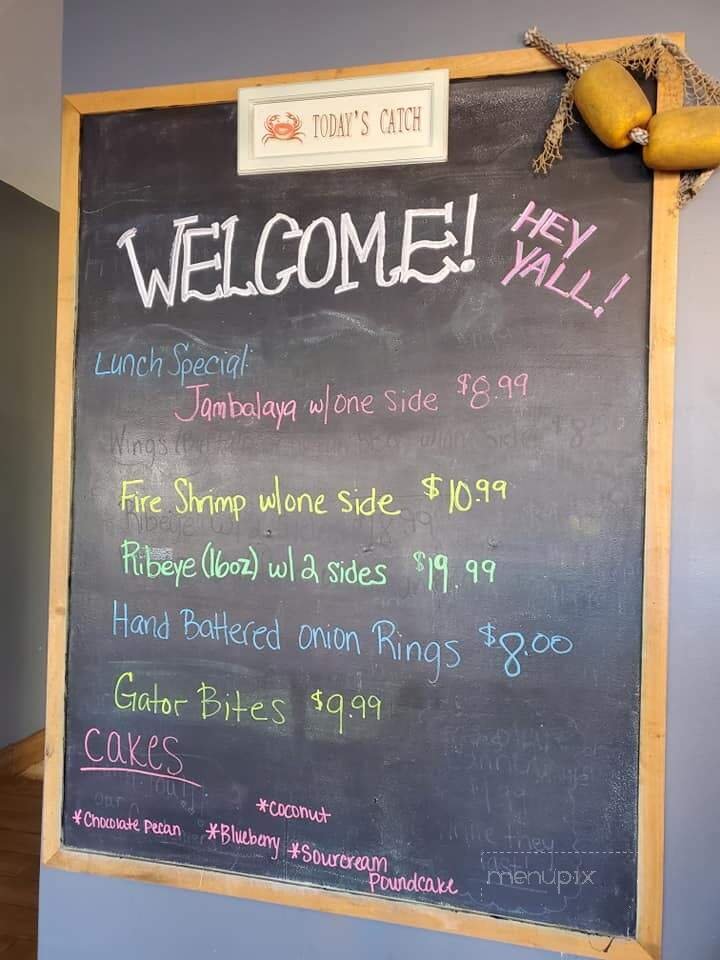 TODAY'S CATCH
WELCOME!
HEY
YALL!
Lunch Special:
Jambalaya w/one side $8.99
Fire Shrimp w/one side $10.99
Ribeye (16oz) w/ 2 sides $19.99
Hand Battered onion Rings $8.00
Gator Bites $9.99
Cakes
*Coconut
*Chocolate Pecan *Blueberry *Sourcream
Poundcake
menupix